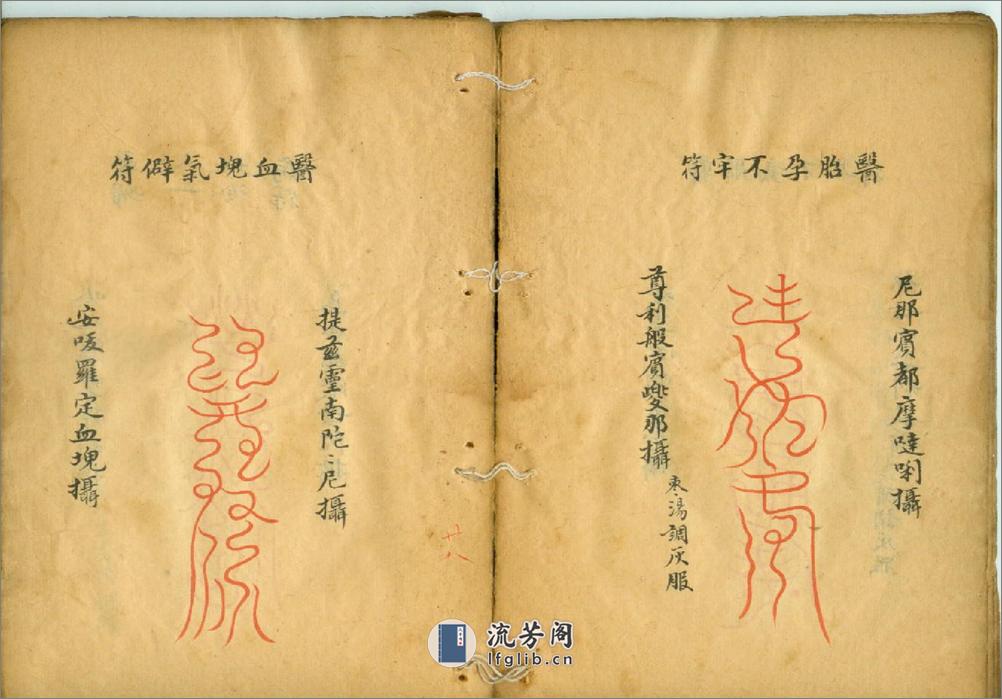 醫胎孕不牢符
尼那賓都摩噠唎攝
尊利般賓㝹那攝
枣湯調灰服
醫血塊氣僻符
提茲靈南陀〻尼攝
安唆羅定血塊攝
廿八
流芳阁
lfglib.cn